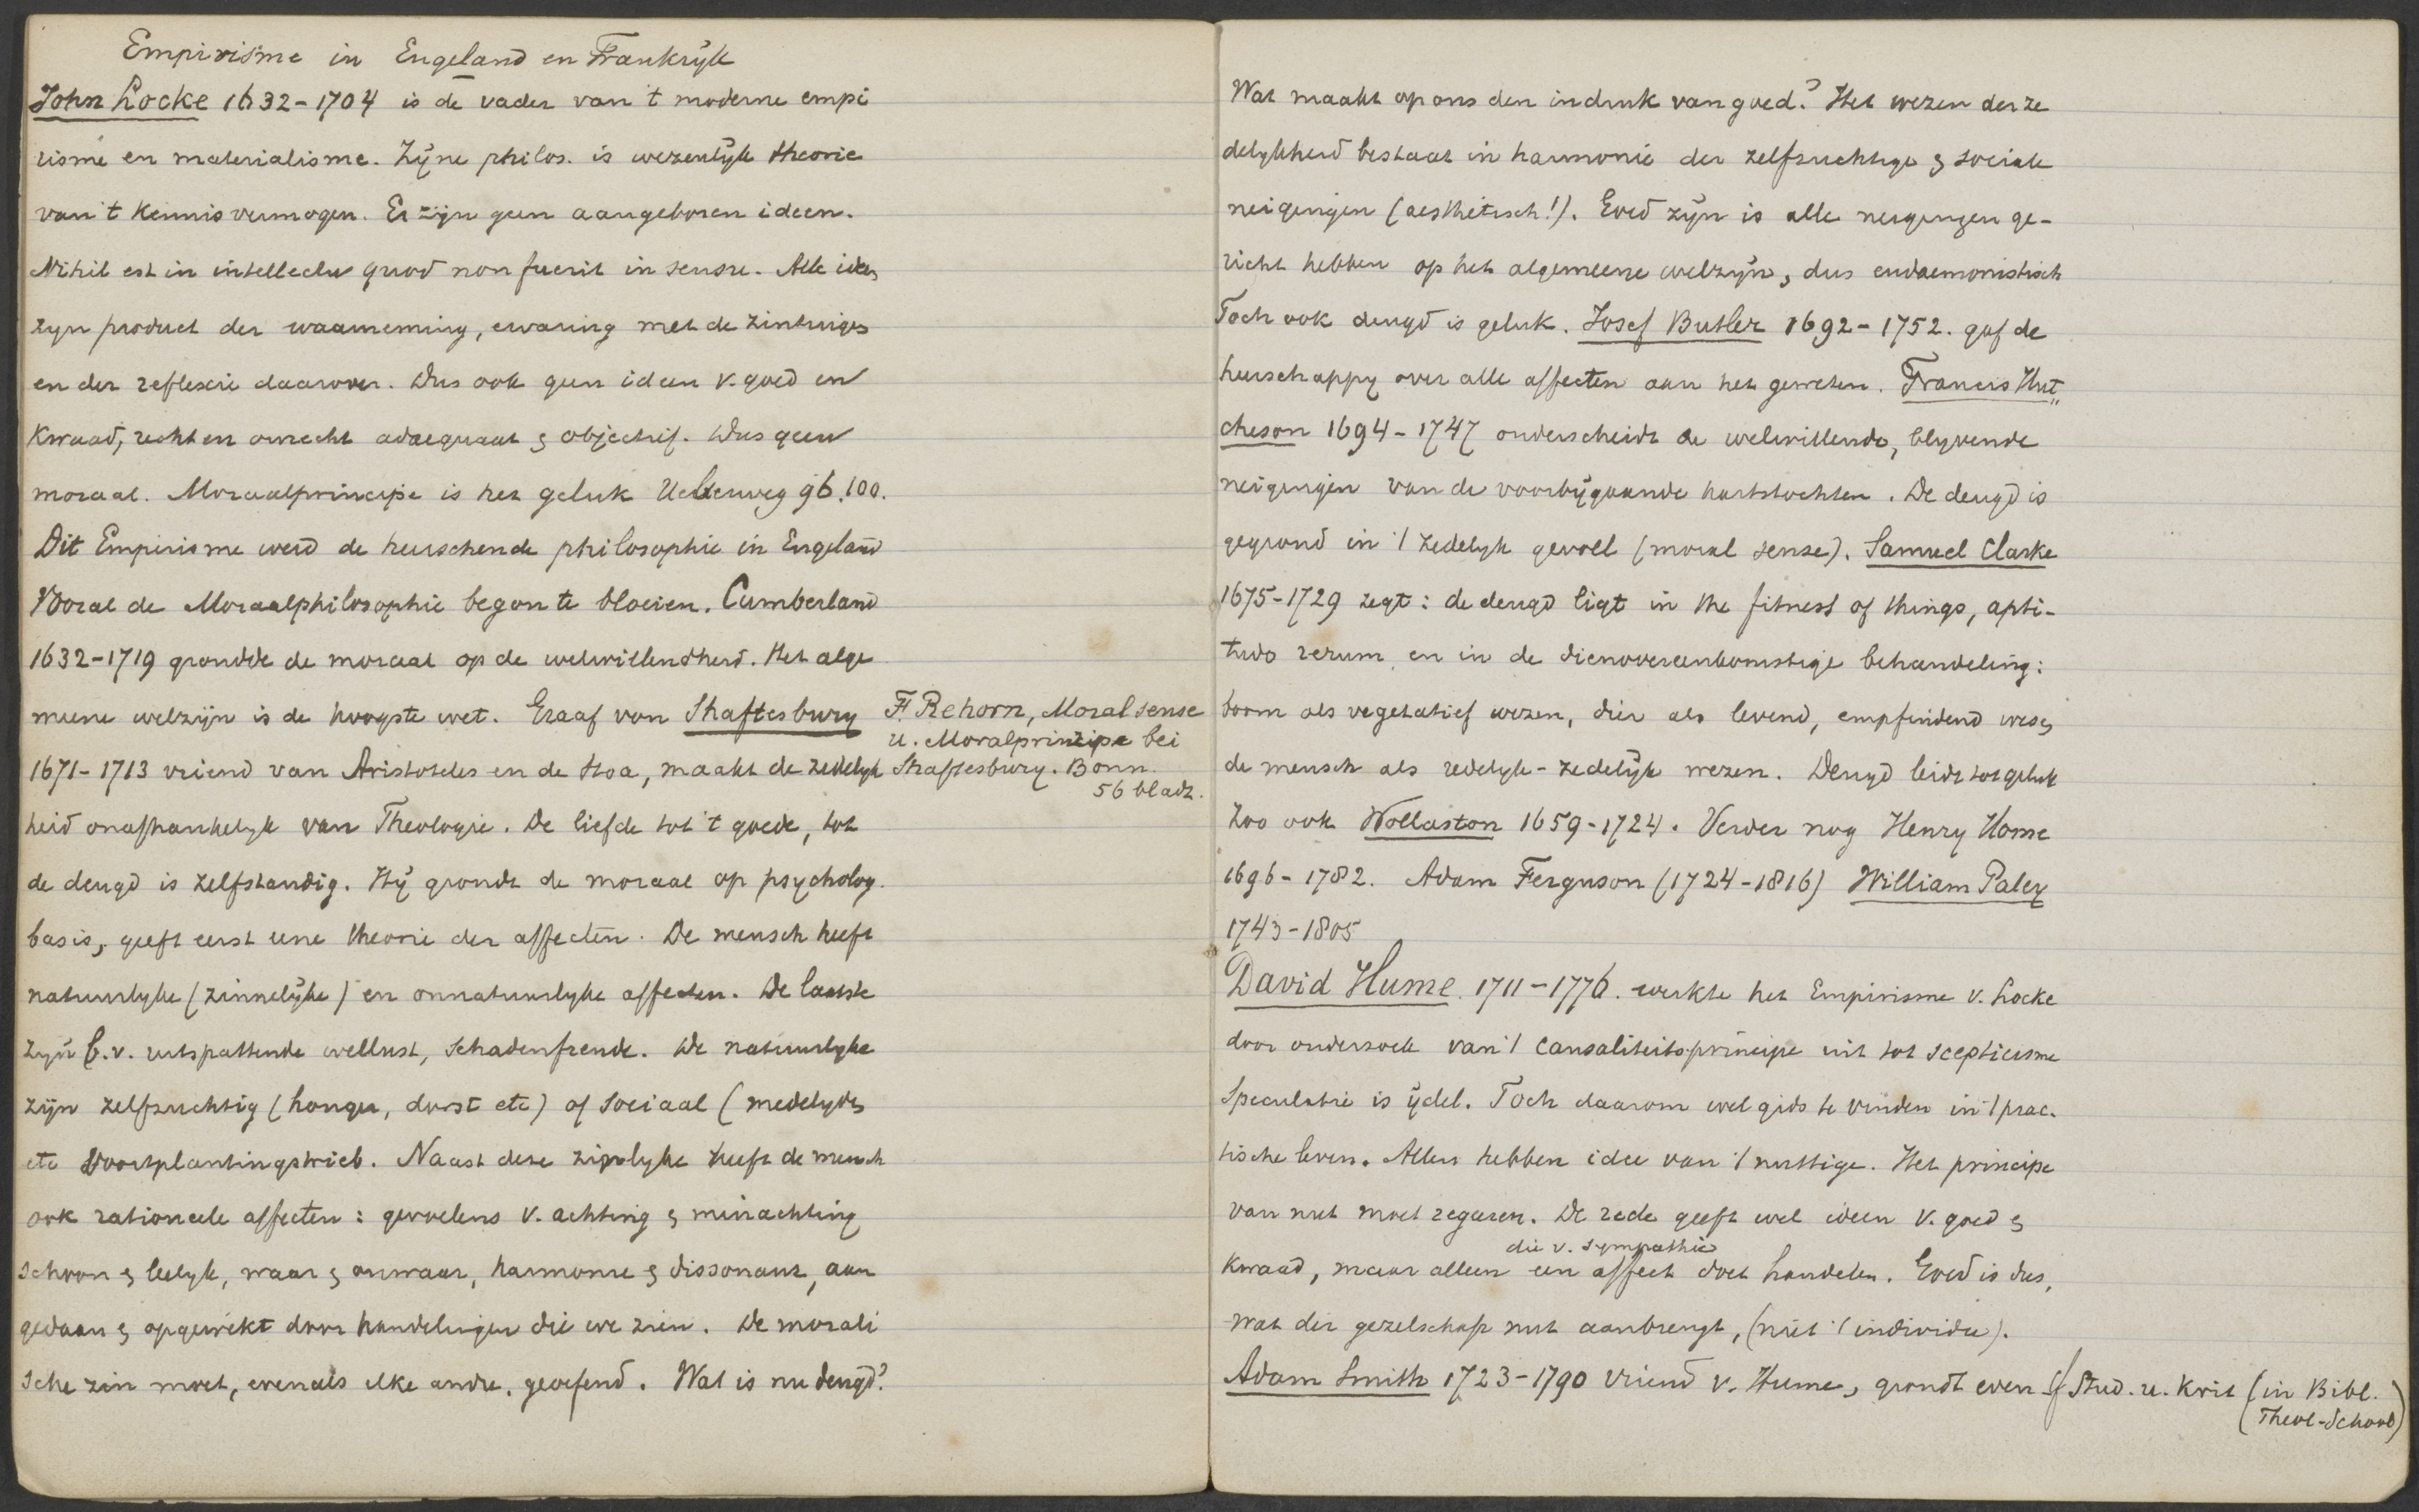 Empirisme in Engeland en Frankrijk
John Locke 1632-1704 is de vader van 't moderne empi
risme en materialisme. Zijne philos. is wezenlijk theorie
van 't Kennisvermogen. Er zijn geen aangeboren ideen.
Nihil est in intellectu quod non fuerit in sensu. Alle ideen
zyn product der waarneming, ervaring met de zintuigen
en der reflexie daarover. Dus ook geen ideen v. goed en
kwaad, recht en onrecht adaequaat & objectief. Dus geen
moraal. Moraalprincipe is het geluk Ueberweg 96.100.
Dit Empirisme werd de heerschende philosophie in Engeland
Vooral de Moraalphilosophie begon te bloeien. Cumberland
1632-1719 grondde de moraal op de welwillendheid. Het alge
meene welzijn is de hoogste wet. Graaf von Shaftesbury
1671-1713 vriend van Aristoteles en de Stoa, maakt de zedelyk
heid onafhankelyk van Theologie. De liefde tot 't goede, tot
de deugd is zelfstandig. Hij grondt de moraal op psycholog.
basis, geeft eerst eene theorie der affecten. De mensch heeft
natuurlyke (zinnelijke) en onnatuurlyke affecten. De laatste
zyn b.v. uitspattende wellust, Schadenfreude. De natuurlyke
zijn zelfzuchtig (honger, dorst etc) of sociaal (medelyden
etc voortplantingstrieb. Naast deze zinnlyke heeft de mensch
ook rationeele affecten: gevoelens v. achting & minachting
schoon & leelyk, waar & onwaar, harmonie & dissonant, aan
gedaan & opgewekt door handelingen die we zien. De morali
sche zin moet, evenals elke andre, geoefend. Wat is nu deugd?
F. Rehorn, Moral sense
u. Moralprinzipe bei
Shaftesbury. Bonn.
56 bladz.
Wat maakt op ons den indruk van goed? Het wezen der ze
delykheid bestaat in harmonie der zelfzuchtige & sociale
neigingen (aesthetisch!). Goed zijn is alle neigingen ge-
richt hebben op het algemeene welzijn, dus eudaemonistisch
Toch ook deugd is geluk. Josef Butler 1692-1752. gaf de
heerschappy over alle affecten aan het geweten. Francis Hut
cheson 1694-1747 onderscheidt de welwillende, blyvende
neigingen van de voorbijgaande hartstochten. De deugd is
gegrond in 't zedelyk gevoel (moral sense). Samuel Clarke
1675-1729 zegt: de deugd ligt in the fitness of things, apti-
tudo rerum en in de dienovereenkomstige behandeling:
boom als vegetatief wezen, dier als levend, empfindend wezen
de mensch als redelyk-zedelijk wezen. Deugd leidt tot geluk
Zoo ook Wollaston 1659-1724. Verder nog Henry Home
1696-1782. Adam Ferguson (1724-1816) William Paley
1743-1805
David Hume. 1711-1776. werkte het Empirisme v. Locke
door onderzoek van 't causaliteitsprincipe uit tot scepticisme
Speculatie is ijdel. Toch daarom wel gids te vinden in 't prac.
tische leven. Allen hebben idee van 't nuttige. Het principe
van nut moet regeeren. De rede geeft wel ideen v. goed &
die v. sympathie
kwaad, maar alleen een affect doet handelen. Goed is dus,
wat der gezelschap nut aanbrengt, (niet 't individu).
Adam Smith 1723-1790 vriend v. Hume, grondt even cf Stud. u. Krit (in Bibl.
Theol-School)